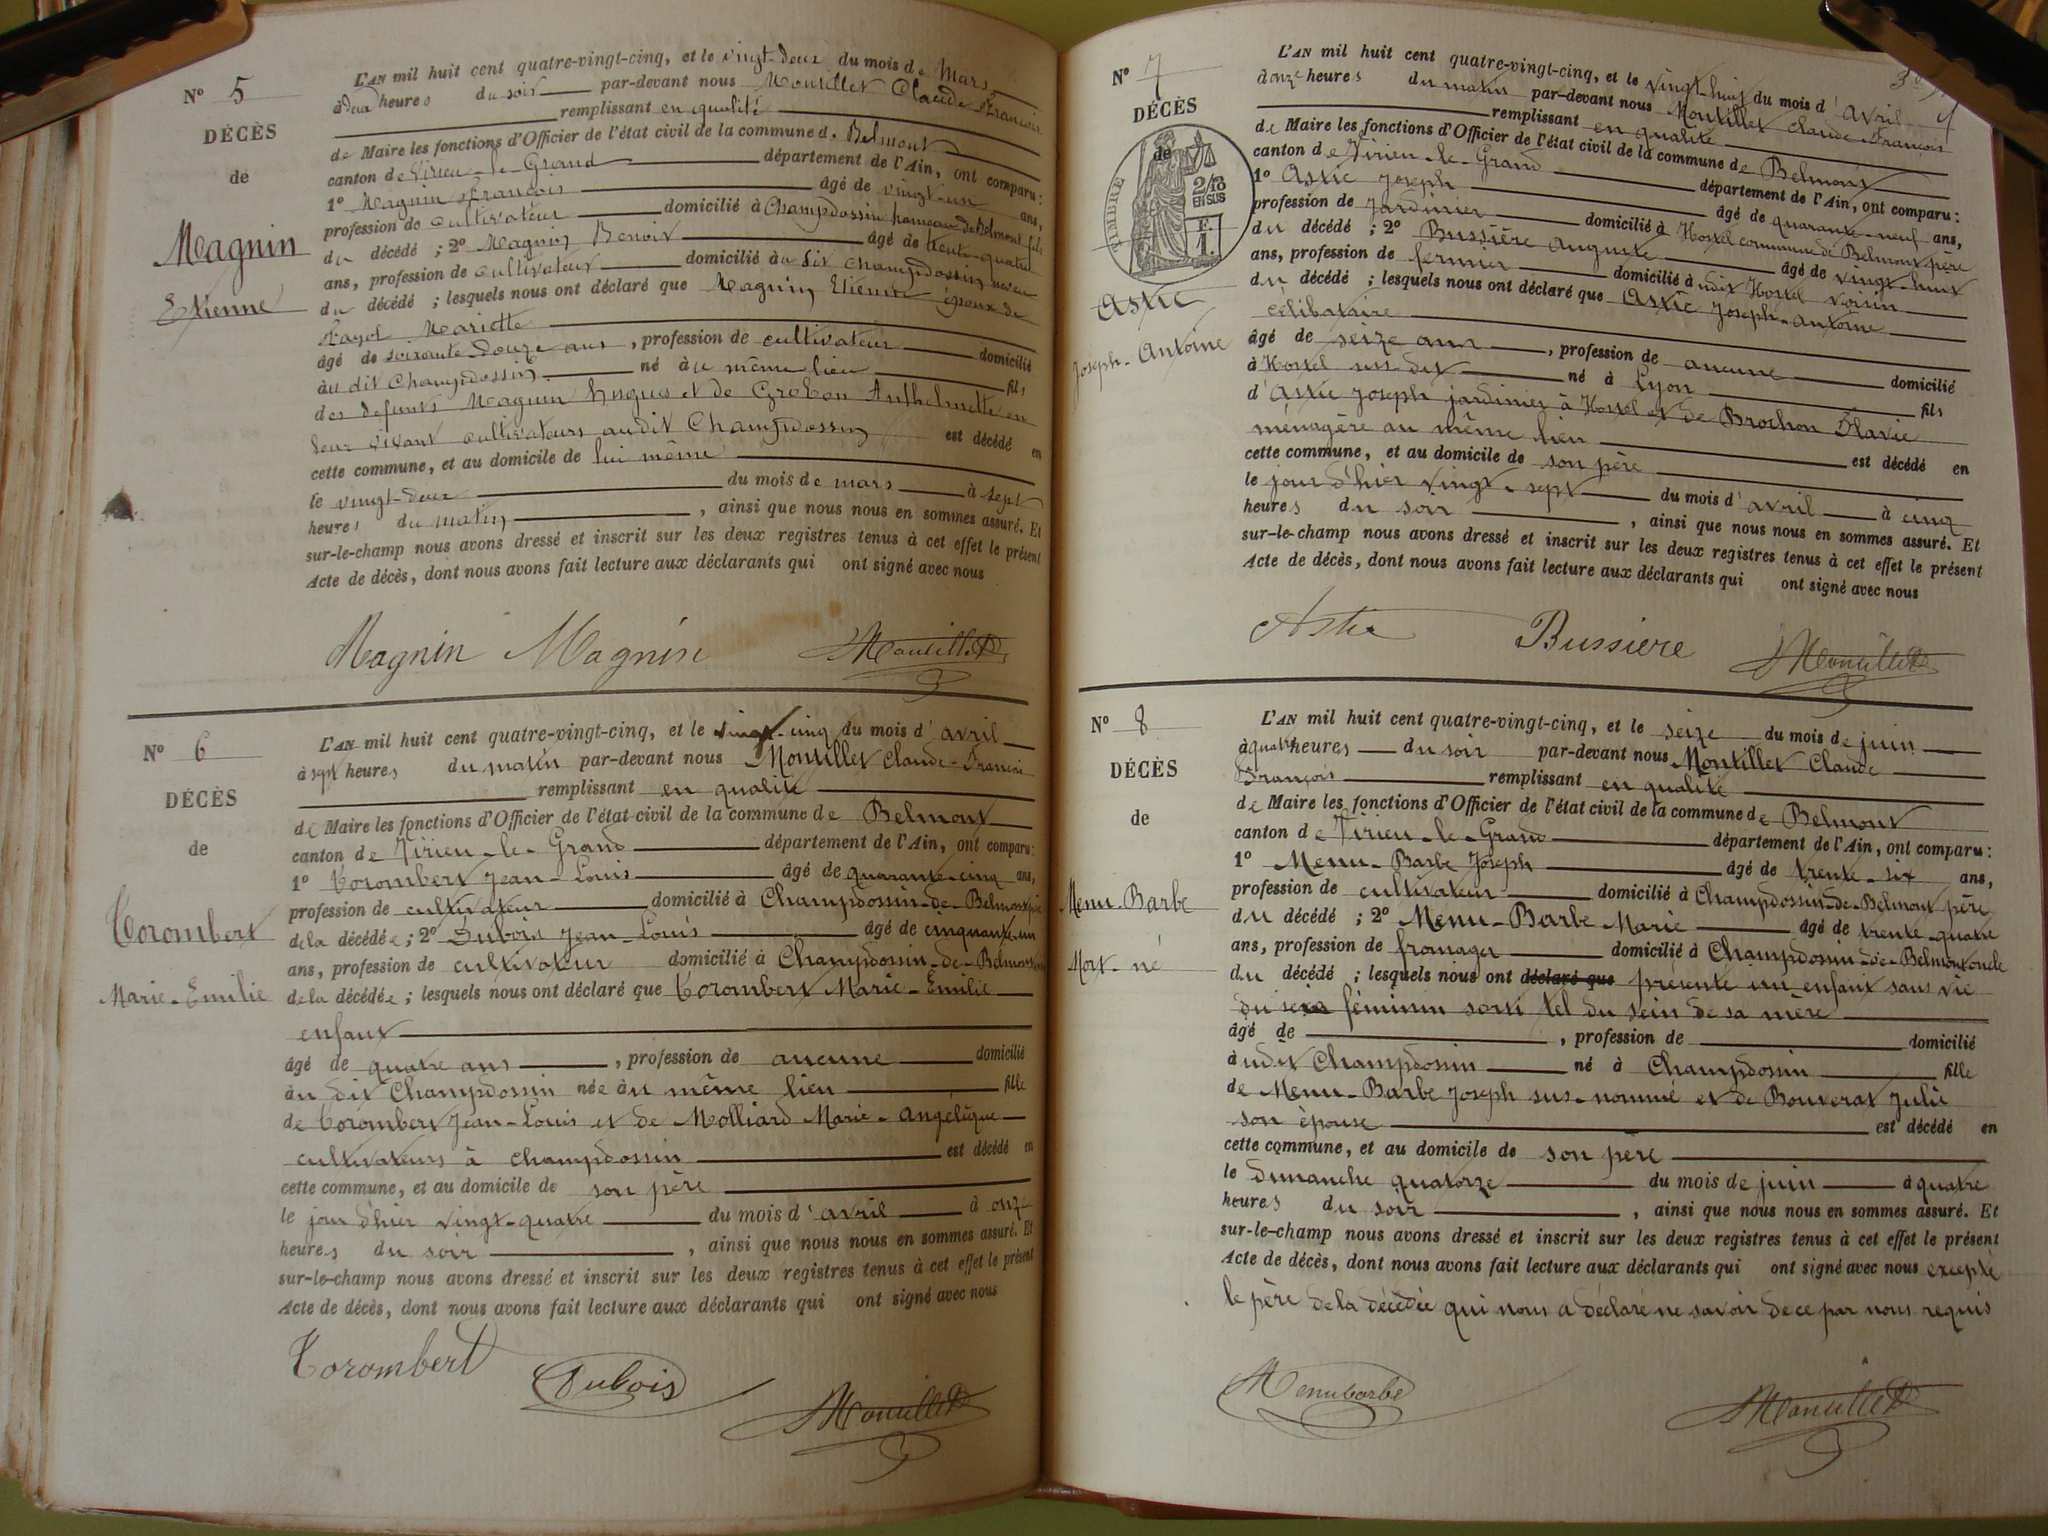 N° 5
DÉCÈS
de
Magnin
Etienne
L'AN mil huit cent quatre-vingt-cinq, et le vingt-deux du mois de Mars
à deux heures du soir par-devant nous Montillet Claude François
remplissant en qualité
de Maire les fonctions d'Officier de l'état civil de la commune de Belmont
canton de Virieu-le-Grand département de l'Ain, ont comparu :
1° Magnin François âgé de vingt-un ans,
profession de cultivateur domicilié à Champdossin hameau de Belmont fils
du décédé ; 2° Magnin Benoit âgé de trente-quatre
ans, profession de cultivateur domicilié au dit Champdossin neveu
du décédé ; lesquels nous ont déclaré que Magnin Etienne époux de
Fayol Mariette
âgé de soixante-douze ans, profession de cultivateur domicilié
au dit Champdossin né à u même lieu fils
des défunts Magnin Hugues et de Anthelmette en
leur vivant cultivateurs au dit Champdossin est décédé en
cette commune, et au domicile de lui même
le vingt-deux du mois de mars à sept
heures du matin, ainsi que nous nous en sommes assuré. Et
sur-le-champ nous avons dressé et inscrit sur les deux registres tenus à cet effet le présent
Acte de décès, dont nous avons fait lecture aux déclarants qui ont signé avec nous
Magnin Magnin Montillet
N° 6
DÉCÈS
de
Corombert
Marie-Emilie
L'AN mil huit cent quatre-vingt-cinq, et le vingt-cinq du mois d'avril
à sept heures du matin par-devant nous Montillet Claude-François
remplissant en qualité
de Maire les fonctions d'Officier de l'état civil de la commune de Belmont
canton de Virieu-le-Grand département de l'Ain, ont comparu :
1° Corombert Jean-Louis âgé de quarante-cinq ans,
profession de cultivateur domicilié à Champdossin-de-Belmont père
de la décédée ; 2° Dubois Jean-Louis âgé de cinquante-un
ans, profession de cultivateur domicilié à Champdossin-de-Belmont
de la décédée ; lesquels nous ont déclaré que Corombert Marie-Emilie
enfant
âgé de quatre ans, profession de aucune domicilié
au dit Champdossin née à u même lieu fille
de Corombert Jean-Louis et de Molliard Marie-Angélique
cultivateurs à Champdossin est décédé en
cette commune, et au domicile de son père
le jour d'hier vingt-quatre du mois d'avril à onze
heures du soir, ainsi que nous nous en sommes assuré. Et
sur-le-champ nous avons dressé et inscrit sur les deux registres tenus à cet effet le présent
Acte de décès, dont nous avons fait lecture aux déclarants qui ont signé avec nous
Corombert Dubois Montillet
N° 7
DÉCÈS
de
TIMBRE
2/10
EN SUS
F.
1.
Astic
Joseph-Antoine
L'AN mil huit cent quatre-vingt-cinq, et le vingt-huit du mois d'Avril
à onze heures du matin par-devant nous Montillet Claude-François
remplissant en qualité
de Maire les fonctions d'Officier de l'état civil de la commune de Belmont
canton de Virieu-le-Grand département de l'Ain, ont comparu :
1° Astic Joseph âgé de quarante-neuf ans,
profession de jardinier domicilié à Hostel commune de Belmont père
du décédé ; 2° Bussière Auguste âgé de vingt-huit
ans, profession de fermier domicilié à udit Hostel voisin
du décédé ; lesquels nous ont déclaré que Astic Joseph-Antoine
célibataire
âgé de seize ans, profession de aucune domicilié
à Hostel sus dit né à Lyon fils
d'Astic Joseph jardinier à Hostel et de Brochon Flavie
ménagère au même lieu est décédé en
cette commune, et au domicile de son père
le jour d'hier vingt-sept du mois d'avril à cinq
heures du soir, ainsi que nous nous en sommes assuré. Et
sur-le-champ nous avons dressé et inscrit sur les deux registres tenus à cet effet le présent
Acte de décès, dont nous avons fait lecture aux déclarants qui ont signé avec nous
Astic Bussiere Montillet
N° 8
DÉCÈS
de
Menu-Barbe
Mort-né
L'AN mil huit cent quatre-vingt-cinq, et le seize du mois de juin
à quatre heures du soir par-devant nous Montillet Claude
François remplissant en qualité
de Maire les fonctions d'Officier de l'état civil de la commune de Belmont
canton de Virieu-le-Grand département de l'Ain, ont comparu :
1° Menu-Barbe Joseph âgé de trente-six ans,
profession de cultivateur domicilié à Champdossin-de-Belmont père
du décédé ; 2° Menu-Barbe Marie âgé de trente-quatre
ans, profession de fromager domicilié à Champdossin-de-Belmont oncle
du décédé ; lesquels nous ont déclaré que présenté un enfant sans vie
du sexe féminin sorti tel du sein de sa mère
âgé de , profession de domicilié
à udit Champdossin né à Champdossin fille
de Menu-Barbe Joseph sus-nommé et de Bouverat Julie
son épouse est décédé en
cette commune, et au domicile de son père
le dimanche quatorze du mois de juin à quatre
heures du soir, ainsi que nous nous en sommes assuré. Et
sur-le-champ nous avons dressé et inscrit sur les deux registres tenus à cet effet le présent
Acte de décès, dont nous avons fait lecture aux déclarants qui ont signé avec nous excepté
le père de la décédée qui nous a déclaré ne savoir de ce par nous requis
Menubarbe Montillet